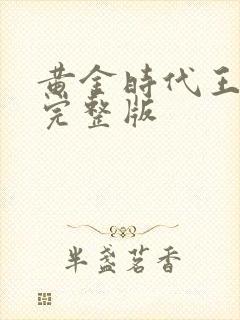 黄金時代王
完整版
半盏茗香